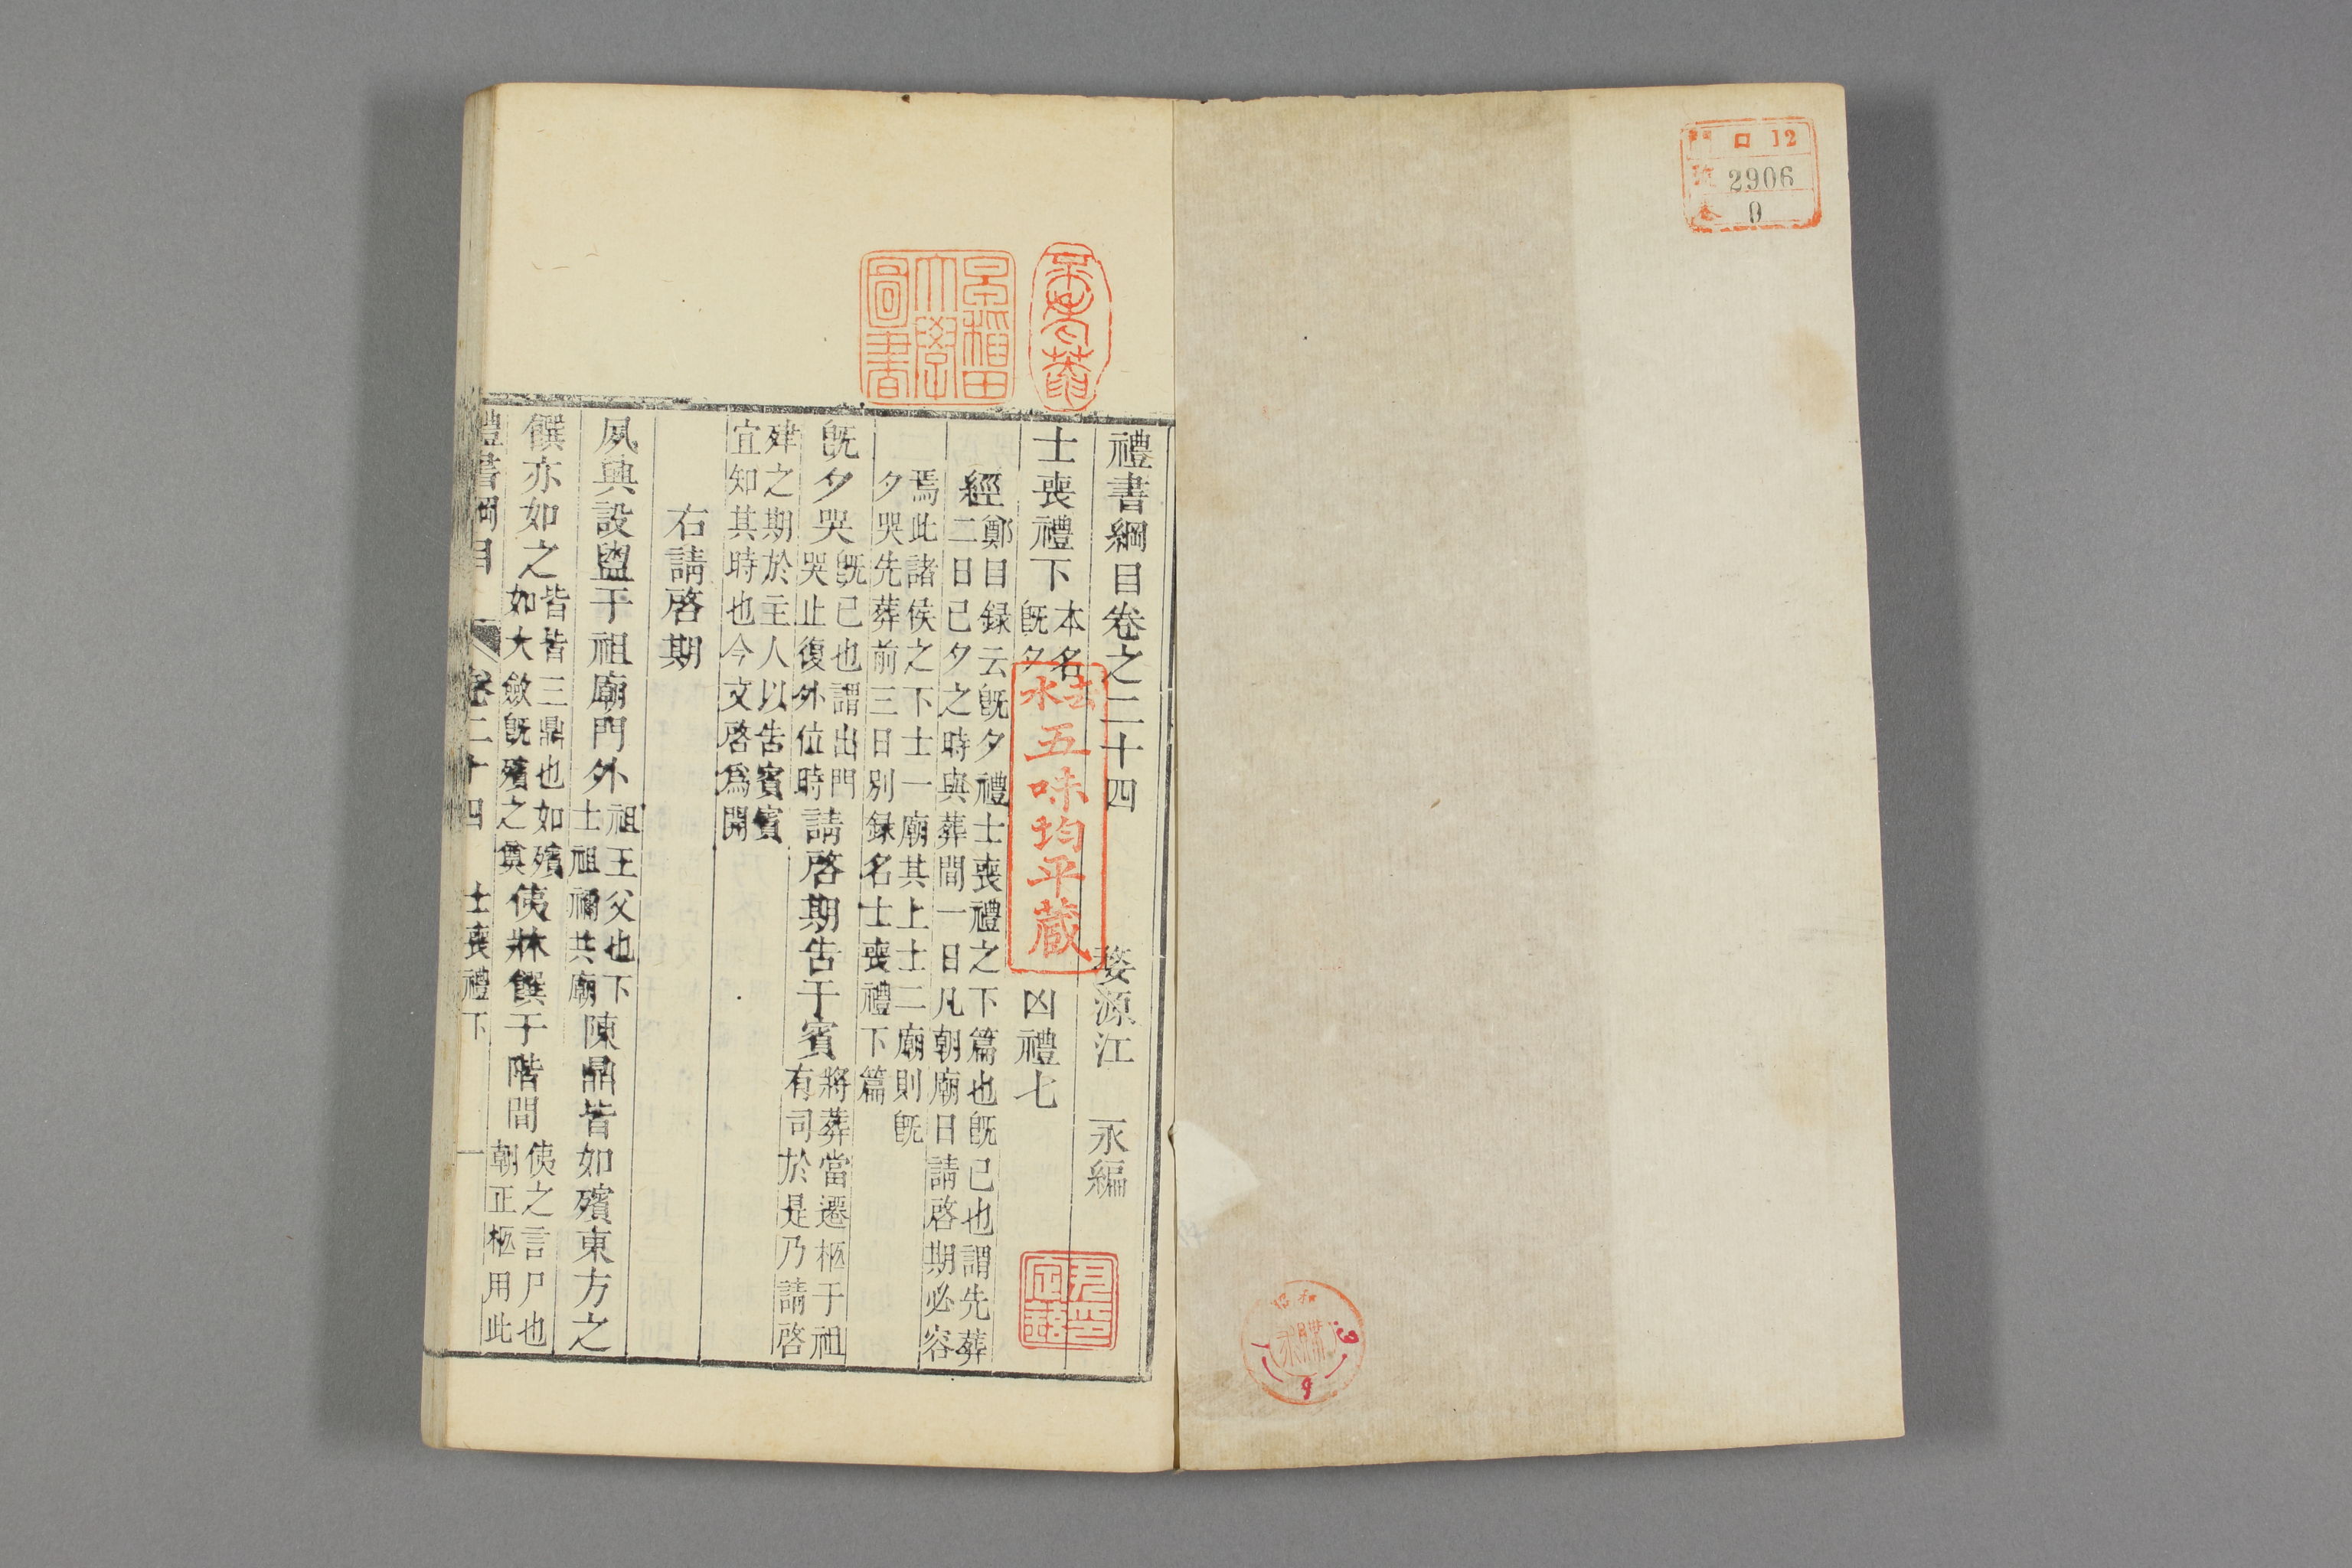 口 12
號 2906
卷 9
早稻田大學圖書
玄水
五味均平蔵
禮書綱目卷之二十四
婺源江 永編
士喪禮下
本名
既夕
凶禮七
經
鄭目録云既夕禮士喪禮之下篇也既已也謂先葬
二日已夕之時與葬間一日凡朝廟日請啓期必容
焉此諸侯之下士一廟其上士二廟則既
夕哭先葬前三日別録名士喪禮下篇
既夕哭
既已也謂出門
哭止復外位時
請啓期告于賓
將葬當遷柩于祖
有司於是乃請啓
肂之期於主人以告賓賓
宜知其時也今文啓爲開
右請啓期
夙興設盥于祖廟門外
祖王父也下
士祖禰共廟
陳鼎皆如殯東方之
饌亦如之
皆皆三鼎也如殯
如大斂既殯之奠
侇牀饌于階間
侇之言尸也
朝正柩用此
禮書綱目
卷二十四
士喪禮下
一